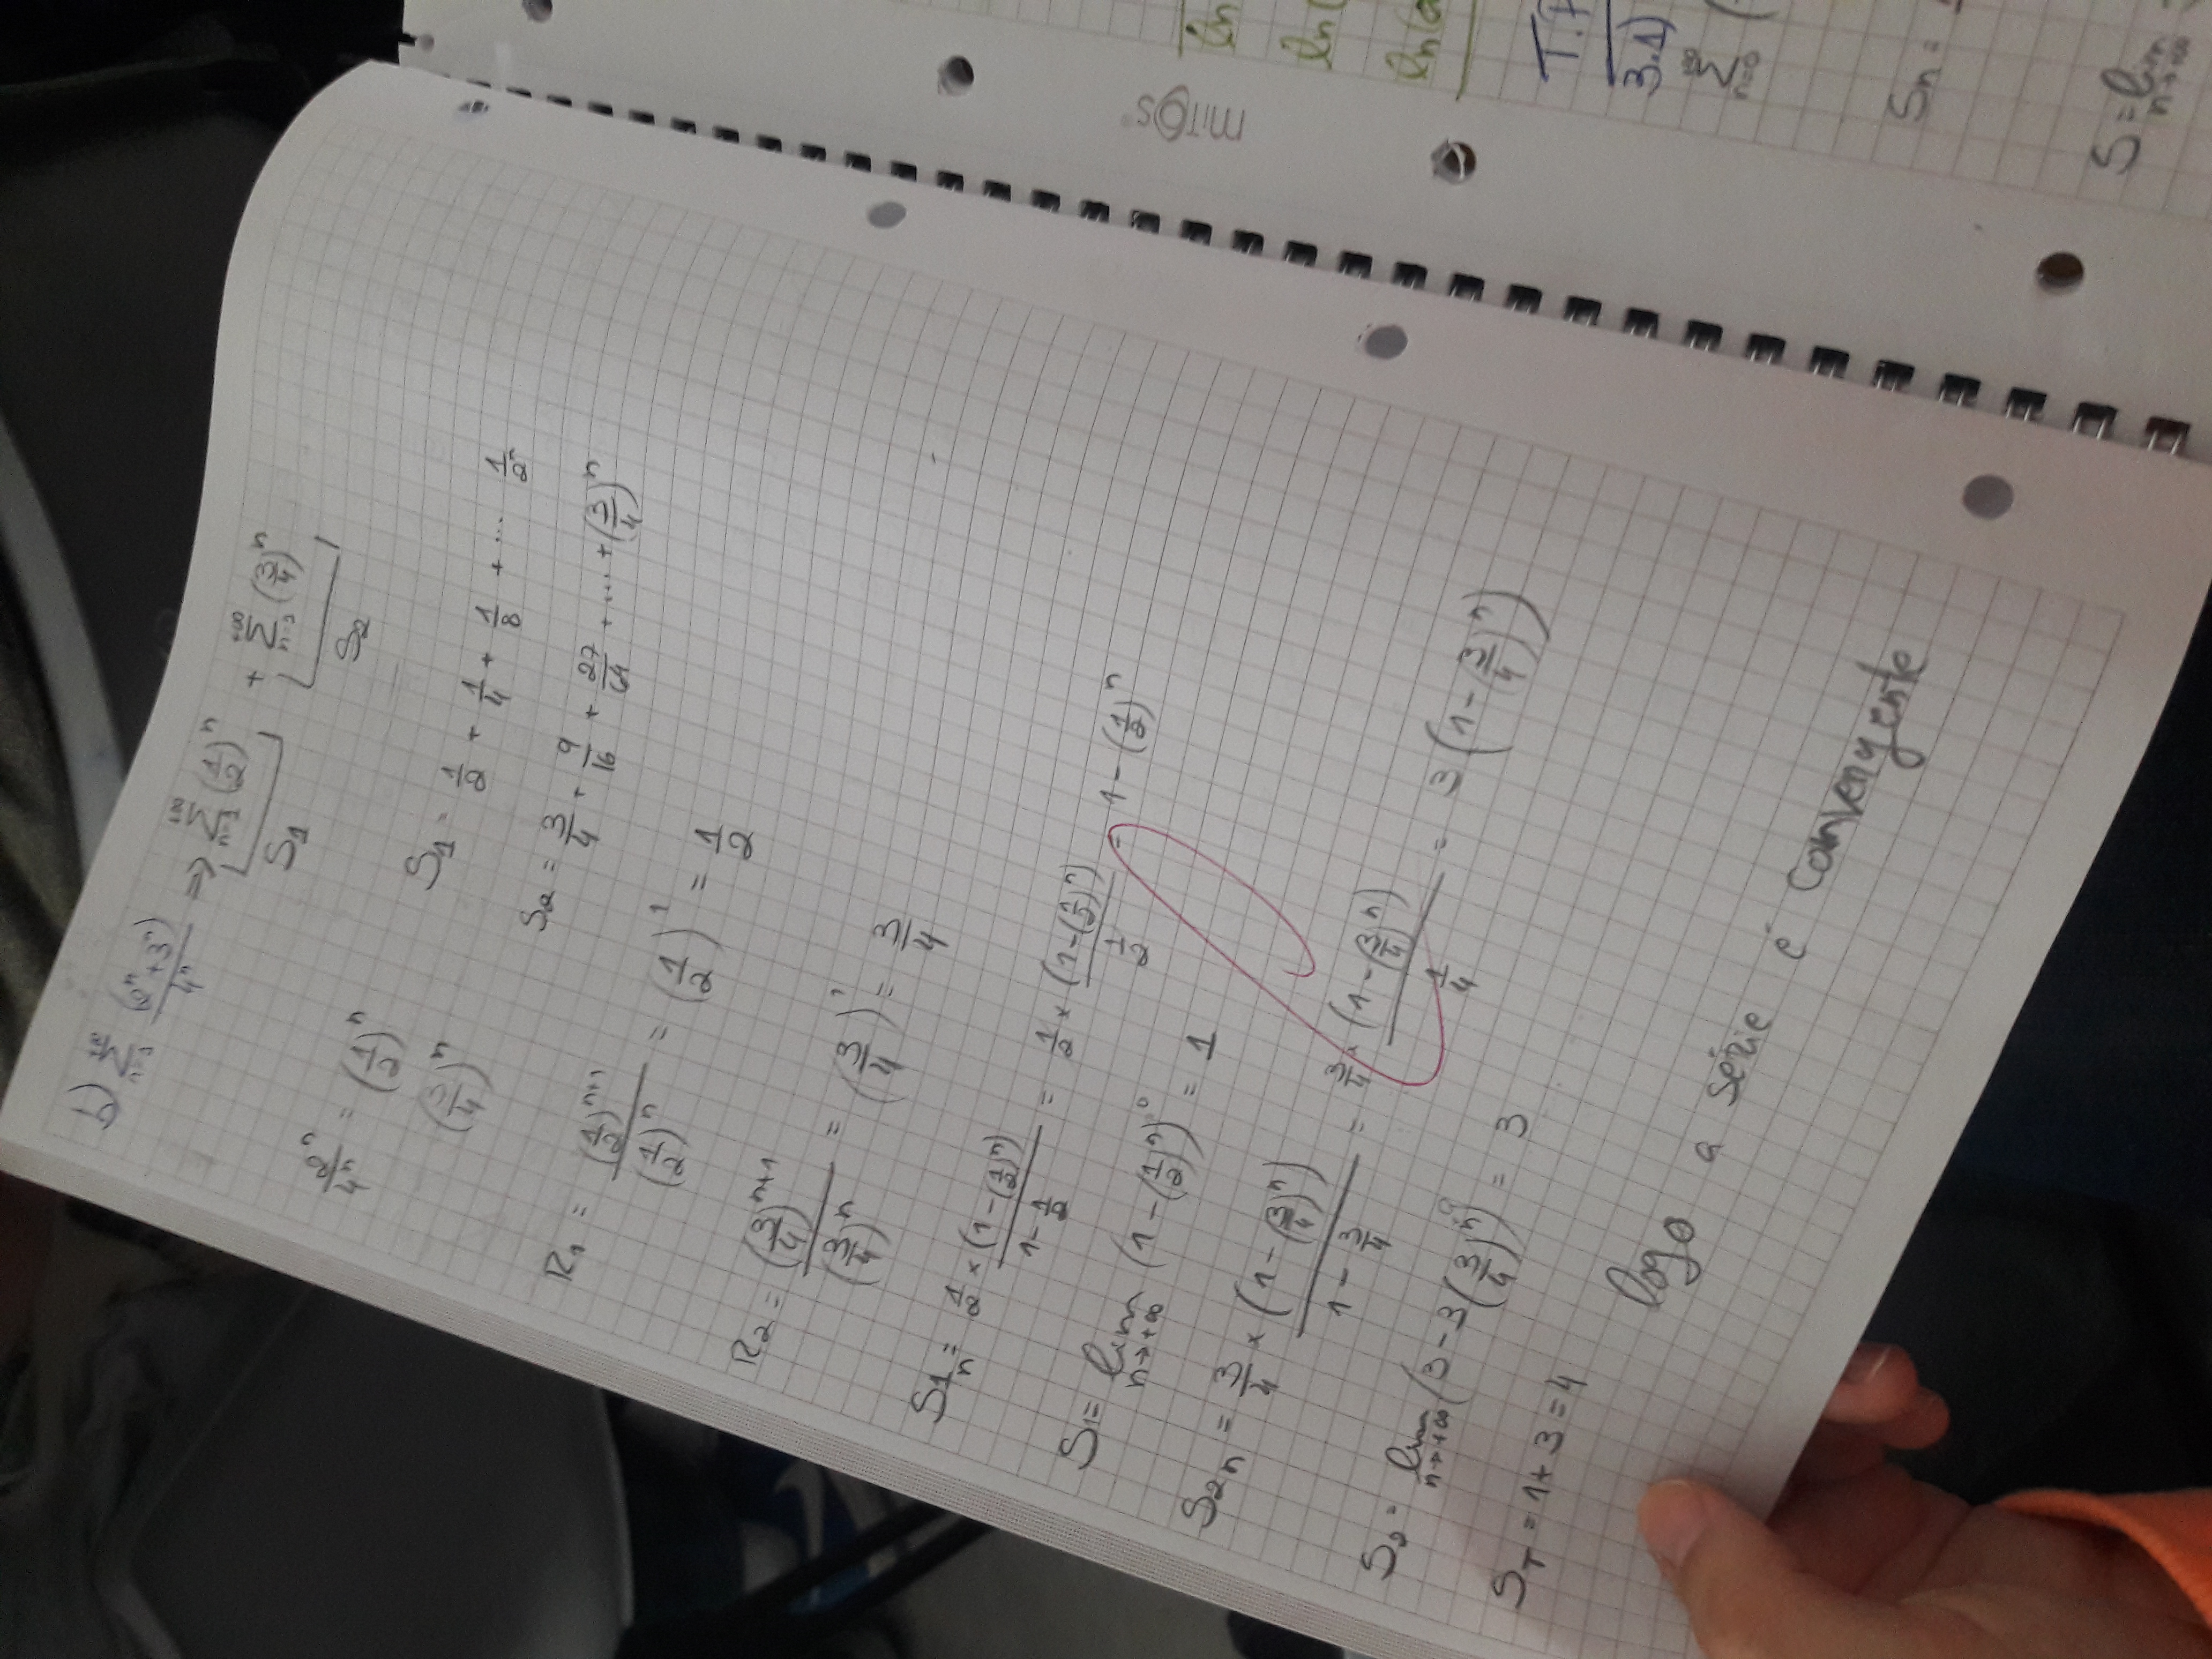 b) +∞ Σ n=1 (2ⁿ+3ⁿ)/4ⁿ => +∞ Σ n=1 (1/2)ⁿ + +∞ Σ n=1 (3/4)ⁿ
S₁ S₂
2ⁿ/4ⁿ = (1/2)ⁿ
(3/4)ⁿ
S₁ = 1/2 + 1/4 + 1/8 + ... 1/2ⁿ
S₂ = 3/4 + 9/16 + 27/64 + ... + (3/4)ⁿ
R₁ = (1/2)ⁿ⁺¹/(1/2)ⁿ = (1/2)¹ = 1/2
R₂ = (3/4)ⁿ⁺¹/(3/4)ⁿ = (3/4)¹ = 3/4
S1ₙ = 1/2 × (1-(1/2)ⁿ)/(1-1/2) = 1/2 × (1-(1/2)ⁿ)/(1/2) = 1-(1/2)ⁿ
S1= lim n→+∞ (1-(1/2)ⁿ)⁰ = 1
S2ₙ = 3/4 × (1-(3/4)ⁿ)/(1-3/4) = 3/4 × (1-(3/4)ⁿ)/(1/4) = 3(1-(3/4)ⁿ)
S₂ = lim n→+∞ (3-3(3/4)ⁿ)⁰ = 3
S_T = 1+3=4
logo a série é convergente
MITOS
ln
ln(
ln(
3.1)
+∞ Σ n=0 (
Sn =
S = lim n→+∞